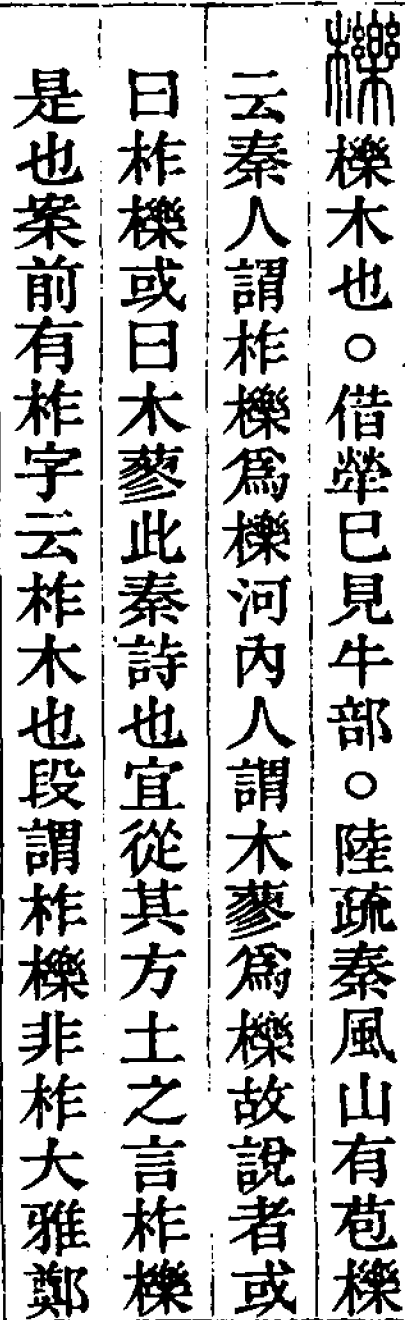 櫟 櫟木也○借犖巳見牛部○陸疏秦風山有苞櫟
云秦人謂柞櫟爲櫟河內人謂木蓼爲櫟故說者或
曰柞櫟或曰木蓼此秦詩也宜從其方土之言柞櫟
是也案前有柞字云柞木也段謂柞櫟非柞大雅鄭